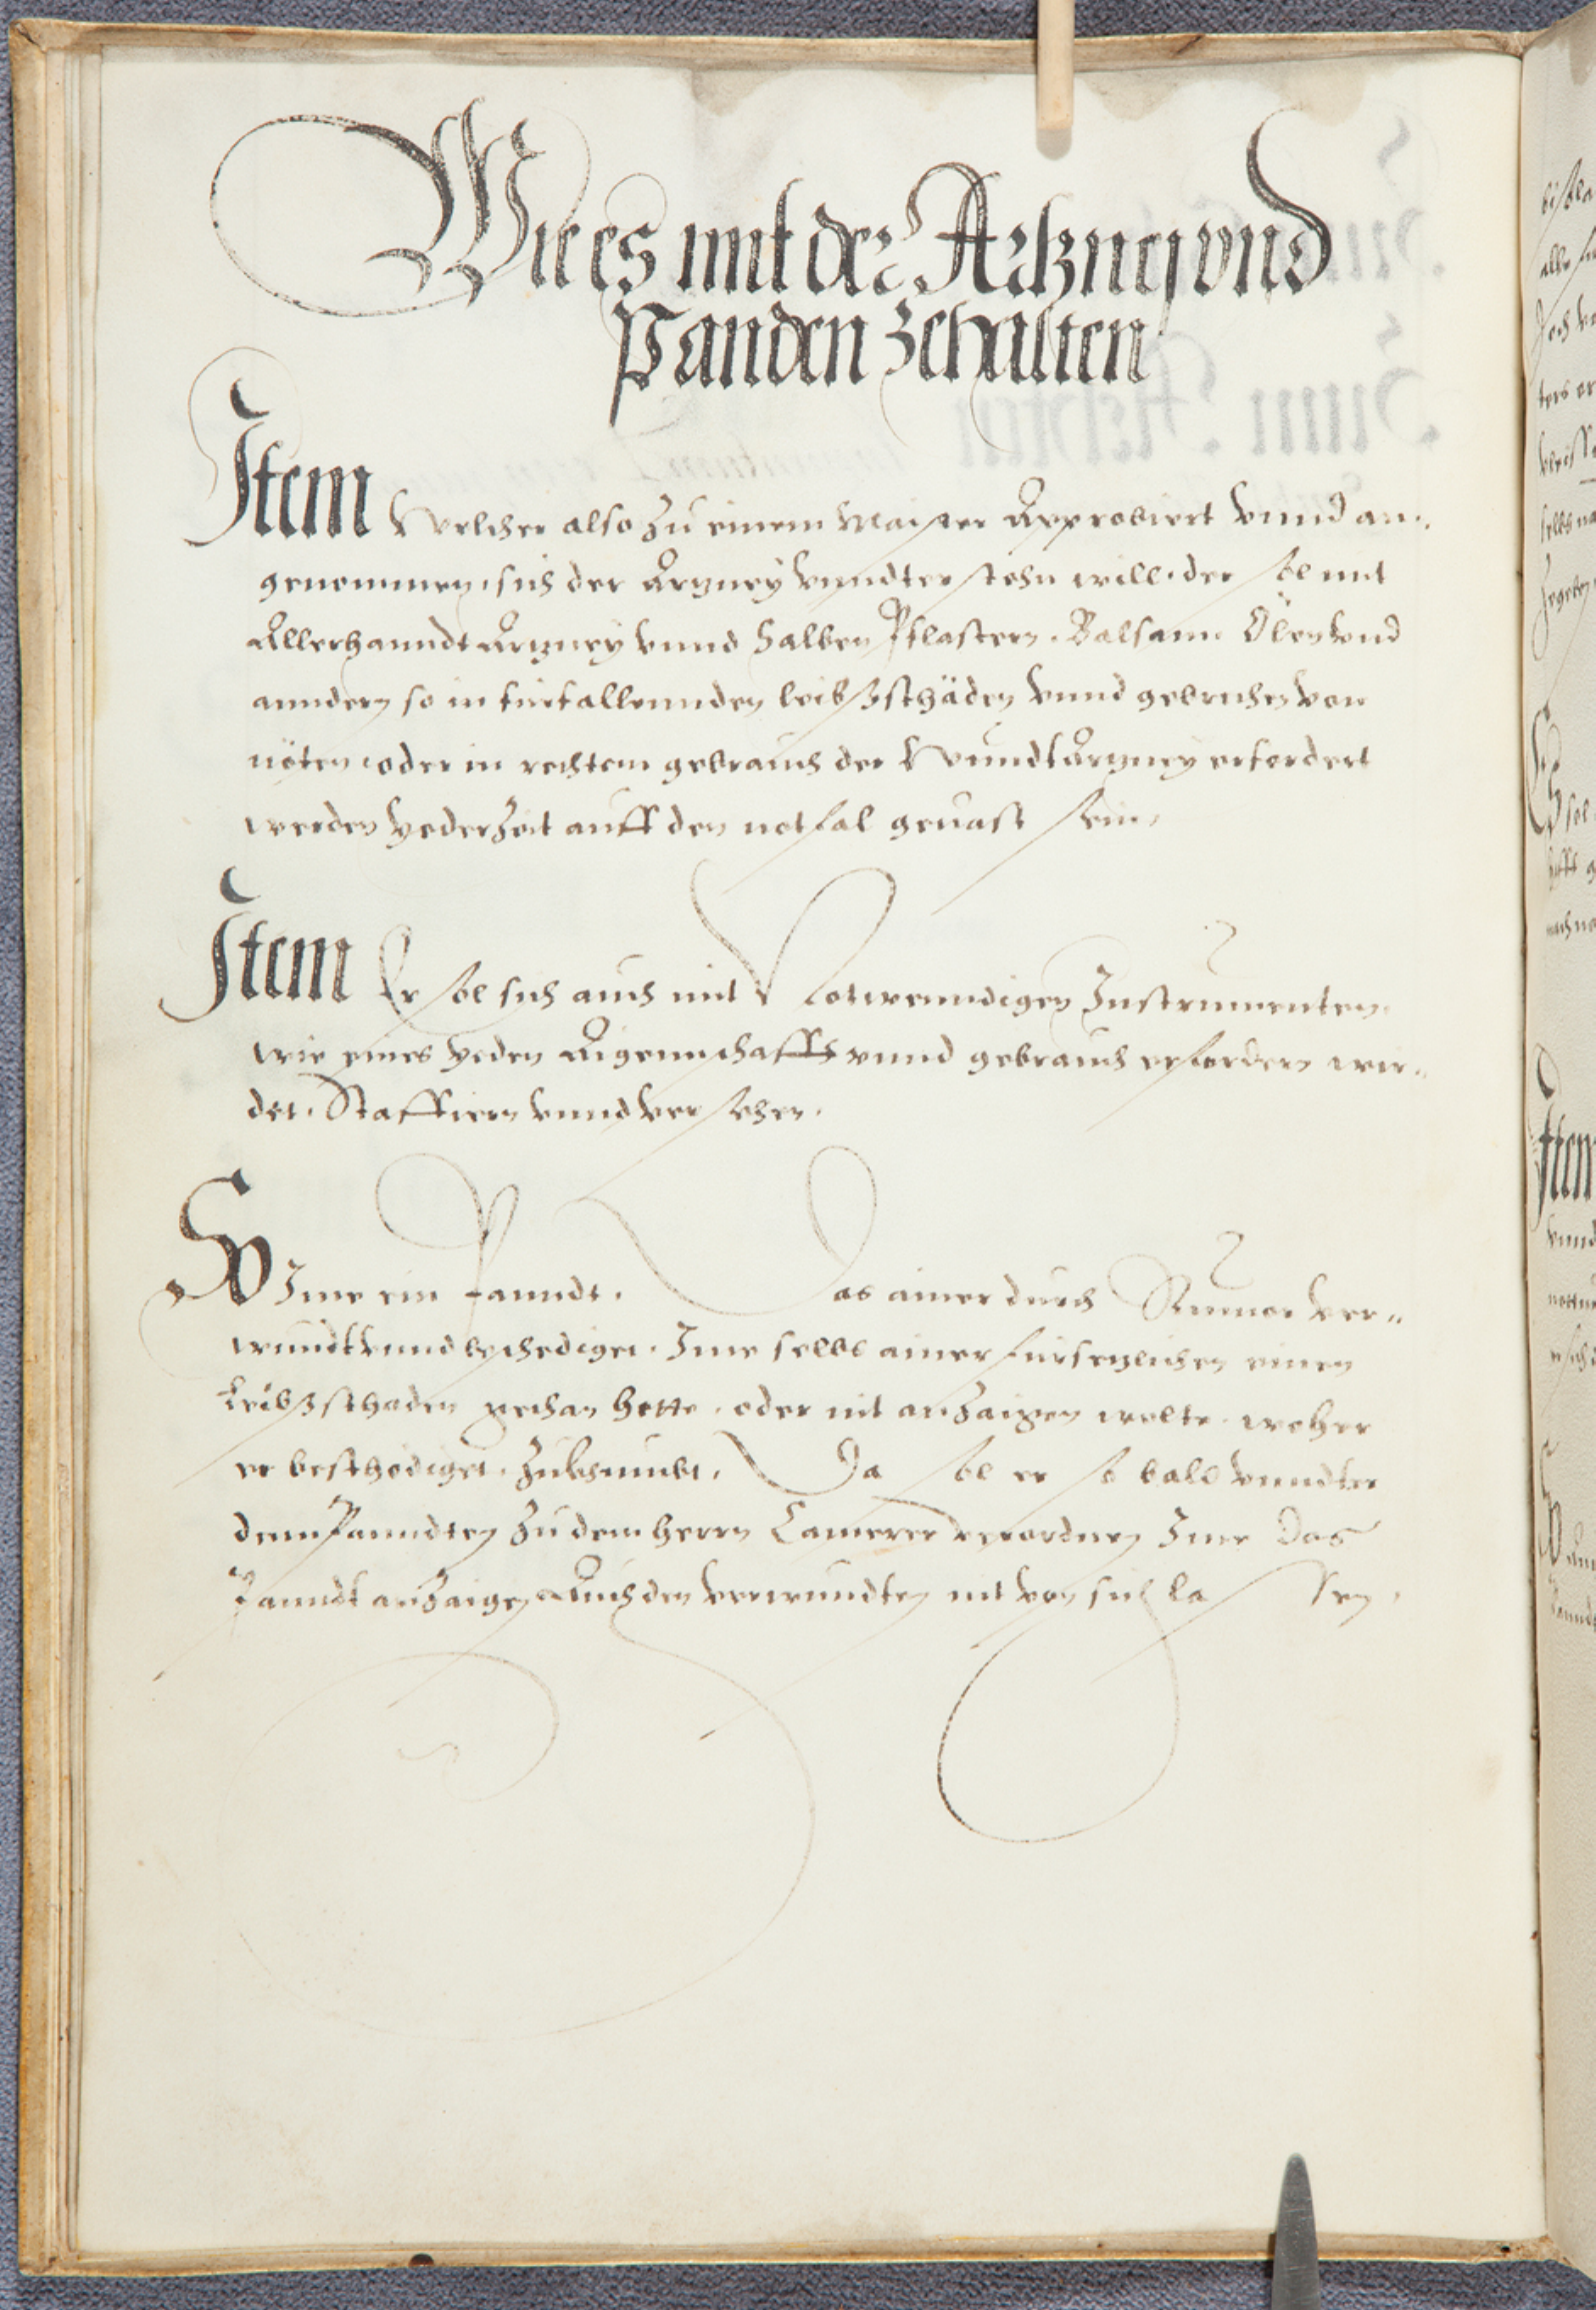 Wie es mit der Artzney vnd
Panden zehalten
Item Welcher also zu einem Maister Approbiert vnnd an-
genommen, sich der Artzney vnndterstehn will, der sol mit
Allerhanndt Artzney vnnd Salben Pflastern. Balsam Ölen vnd
anndern so in fürfallennden leibßschäden vnnd gebruchen von
nöten, oder in rechtem gebrauch der Wundtartzney erfordert
werden yederzeit auff den notfal geuast sein,
Item Er sol sich auch mit Notwenndigen Instrumenten,
wie eines yeden Aigennschafft vnnd gebrauch erfordern wir-
det. Staffiern vnnd versehen.
So Ime ein Panndt. Das ainer durch Rumor ver-
wundt vnnd beschediget. Ime selbs ainer fürsetzlichen einen
Leibßschaden gethan hette, oder nit anzaigen wolte, woher
er beschediget, zukhumbt, Da sol er so bald vnndter
dem Panndten zu dem herrn Camerer verordnen Ime Das
Panndt anzaigen Auch den verwundten nit von sich lassen,